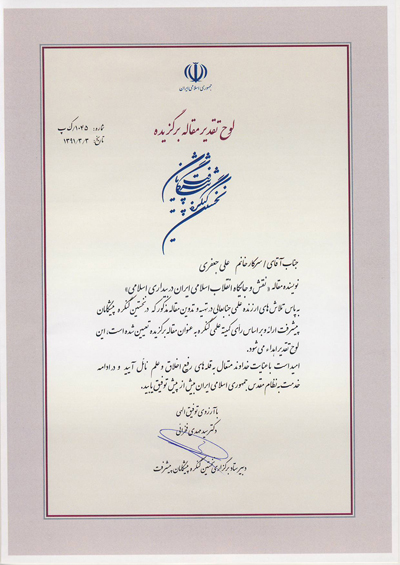 جمهوری اسلامی ایران
لوح تقدیر مقاله برگزیده
شماره: ۱۰۲۵/ک‌پ
تاریخ: ۱۳۹۱/۳/۳
نخستین کنگره پیشگامان پیشرفت
جناب آقای / سرکار خانم علی جعفری
نویسنده مقاله «نقش و جایگاه انقلاب اسلامی ایران در بیداری اسلامی»
به پاس تلاش های ارزنده علمی جنابعالی در تهیه و تدوین مقاله مذکور که در نخستین کنگره پیشگامان
پیشرفت ارائه و بر اساس رأی کمیته علمی کنگره به عنوان مقاله برگزیده تعیین شده است، این
لوح تقدیر اهداء می شود.
امید است با عنایت خداوند متعال به قله های رفیع اخلاق و علم نائل آیید و در ادامه
خدمت به نظام مقدس جمهوری اسلامی ایران بیش از پیش توفیق یابید.
با آرزوی توفیق الهی
دکتر سید مهدی
دبیر ستاد برگزاری نخستین کنگره پیشگامان پیشرفت